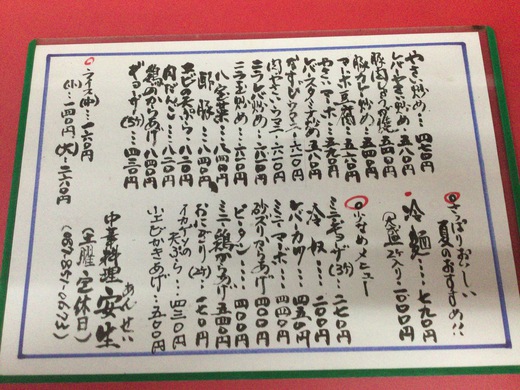 やさい炒め…四七〇円
レバーやさい炒め…五八〇円
豚肉しょうが焼
豚カレー炒め…五四〇円
マーボ豆腐…五二〇円
やさいマーボ…五九〇円
レバースタミナ炒め 五八〇円
なすピリカラ…六二〇円
肉ピーマン
ニラレバ炒め…六二〇円
ニラ玉炒め…六〇〇円
八宝菜…八四〇円
酢豚…八四〇円
エビの天ぷら…八二〇円
肉だんご…八二〇円
鶏のからあげ 八四〇円
ギョーザ(5ケ)…四三〇円
ライス(中)…一六〇円
(小)…一四〇円 (大)…二六〇円
さっぱりおいしい
夏のおすすめ!!
冷麺…七九〇円
〇小さめメニュー
ミニギョーザ(3ケ)…二七〇円
冷奴…二〇〇円
レバーカツ…四五〇円
ミニマーボ…四四〇円
砂ずりからあげ 四〇〇円
ピータン…四〇〇円
ミニ鶏からあげ 四五〇円
おにぎり(2ケ)…二七〇円
イカの天ぷら…四三〇円
小エビかきあげ…五〇〇円
中華料理 安生
あんせい
(土曜定休日)